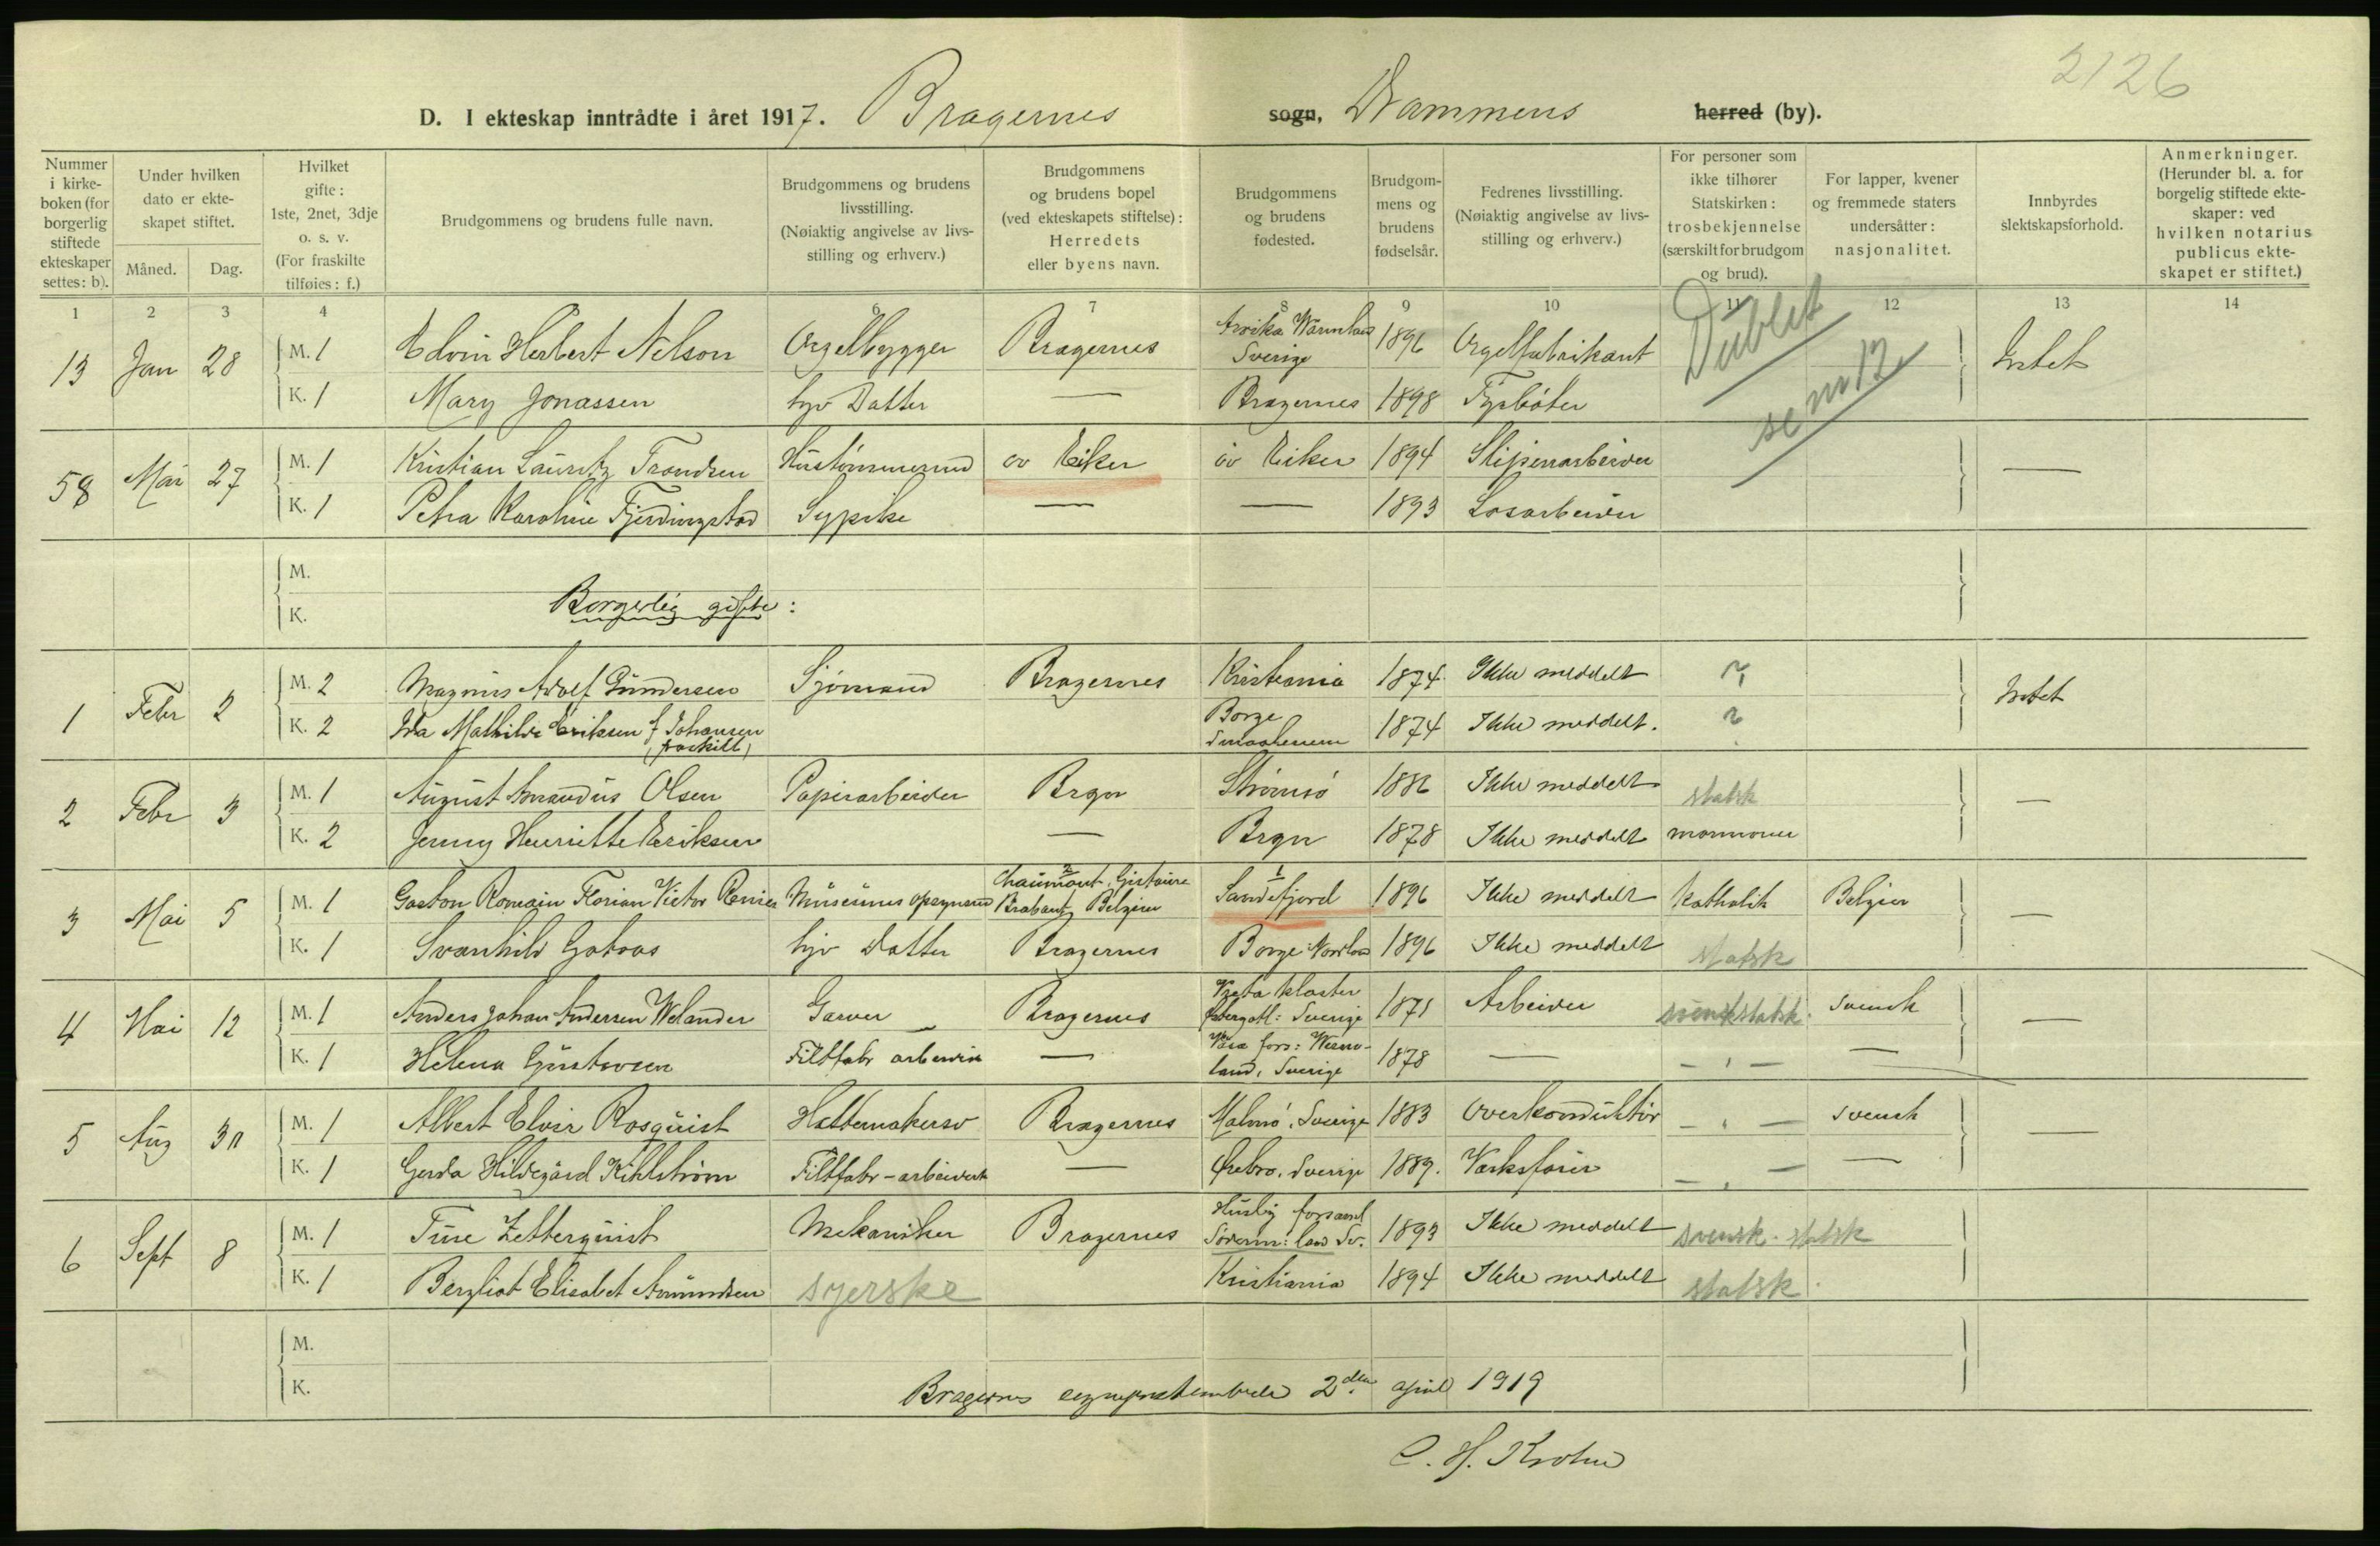 2126
D. I ekteskap inntrådte i året 1917. Bragernes sogn, Drammens herred (by).
Nummer i kirke-boken (for borgerlig stiftede ekteskaper settes: b).
Under hvilken dato er ekte-skapet stiftet.
Måned. Dag.
Hvilket gifte: 1ste, 2net, 3dje o. s. v. (For fraskilte tilføies: f.)
Brudgommens og brudens fulle navn.
Brudgommens og brudens livsstilling. (Nøiaktig angivelse av livs-stilling og erhverv.)
Brudgommens og brudens bopel (ved ekteskapets stiftelse): Herredets eller byens navn.
Brudgommens og brudens fødested.
Brudgom-mens og brudens fødselsår.
Fedrenes livsstilling. (Nøiaktig angivelse av livs-stilling og erhverv.)
For personer som ikke tilhører Statskirken: trosbekjennelse (særskilt for brudgom og brud).
For lapper, kvener og fremmede staters undersåtter: nasjonalitet.
Innbyrdes slektskapsforhold.
Anmerkninger. (Herunder bl. a. for borgelig stiftede ekte-skaper: ved hvilken notarius publicus ekte-skapet er stiftet.)
1 2 3 4 6 7 8 9 10 11 12 13 14
13 Jan 28 M. 1 Edvin Herbert Nelson Orgelbygger Bragernes Arvika Värmland Sverige 1896 Orgelfabrikant Dublet Intet
K. 1 Mary Jonassen hjv Datter — Bragernes 1898 Fyrbøter se nr 12
58 Mai 27 M. 1 Kristian Lauritz Trondsen Hustømmermand øv Eiker øv Eiker 1894 Sliperiarbeider —
K. 1 Petra Karoline Fjerdingstad Sypike — — 1893 Løsarbeider
M.
K. Borgerlig gifte:
1 Febr 2 M. 2 Magnus Adolf Gundersen Sjømand Bragernes Kristiania 1874 Ikke meddelt ? Intet
K. 2 Ida Mathilde Eriksen f Johansen (fraskilt) Borge Smaalenene 1874 Ikke meddelt. ?
2 Febr 3 M. 1 August Amandus Olsen Papirarbeider Brgn Strømsø 1886 Ikke meddelt statsk —
K. 2 Jenny Henriette Eriksen — Brgn 1878 Ikke meddelt mormoner
3 Mai 5 M. 1 Gaston Romain Florian Victor Renier Musæums opsynsmand Chaumont, Gistoux Brabant, Belgien 2 Sandefjord 1 1896 Ikke meddelt Katholik Belgier —
K. 1 Svanhild Gotaas hjv Datter Bragernes Borge Nordland 1896 Ikke meddelt statsk
4 Mai 12 M. 1 Anders Johan Andersen Welander Garver Bragernes Vreta kloster Østergøtl: Sverige 1871 Arbeider svensk statsk. Svensk —
K. 1 Helena Gustavsen Filtfabr arbeider — fors: Werm-land, Sverige 1878 — — " — —
5 Aug 30 M. 1 Albert Elvir Rosquist Hattemakersv Bragernes Malmø, Sverige 1883 Overkonduktør — " — svensk —
K. 1 Gerda Hildegard Kihlstrøm Filtfabr-arbeiderk — Ørebro, Sverige 1889. Værksfører — " — —
6 Sept 8 M. 1 Ture Zetterquist Mekaniker Bragernes Husby forsaml Søderm: land Sv. 1893 Ikke meddelt svensk. statsk
K. 1 Bergliot Elisabet Amundsen syerske Kristiania 1894 Ikke meddelt statsk.
M.
K.
Bragernes sogneprestembede 2den april 1919
C. H. Krohn